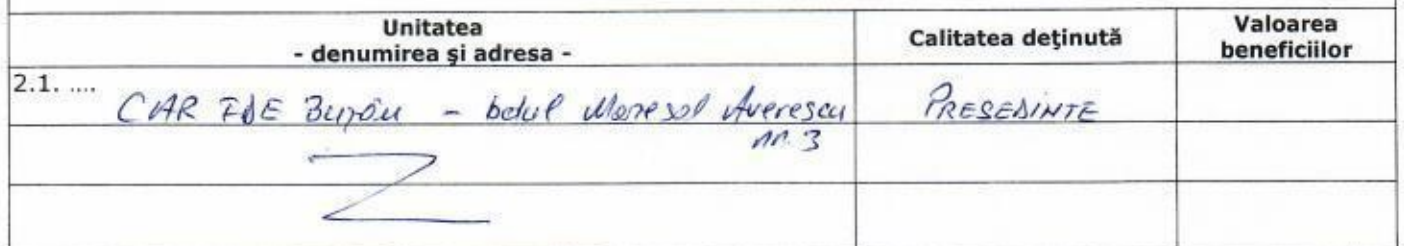 Unitatea
- denumirea și adresa -
Calitatea deţinută
Valoarea
beneficiilor
2.1. ....
CAR - bdul Averescu
nr. 3
PRESEDINTE